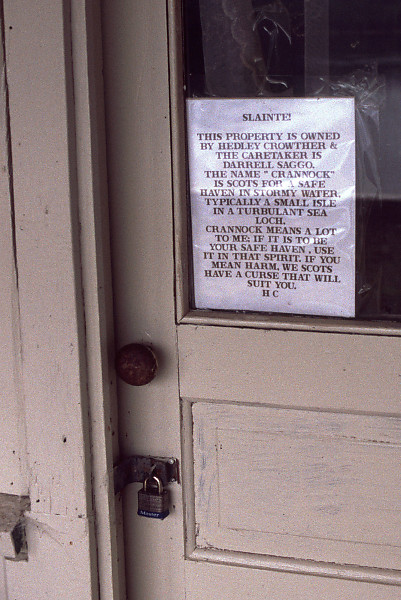 SLAINTE!
THIS PROPERTY IS OWNED
BY HEDLEY CROWTHER &
THE CARETAKER IS
DARRELL SAGGO.
THE NAME " CRANNOCK"
IS SCOTS FOR A SAFE
HAVEN IN STORMY WATER.
TYPICALLY A SMALL ISLE
IN A TURBULANT SEA
LOCH.
CRANNOCK MEANS A LOT
TO ME; IF IT IS TO BE
YOUR SAFE HAVEN , USE
IT IN THAT SPIRIT. IF YOU
MEAN HARM, WE SCOTS
HAVE A CURSE THAT WILL
SUIT YOU.
H C
Master